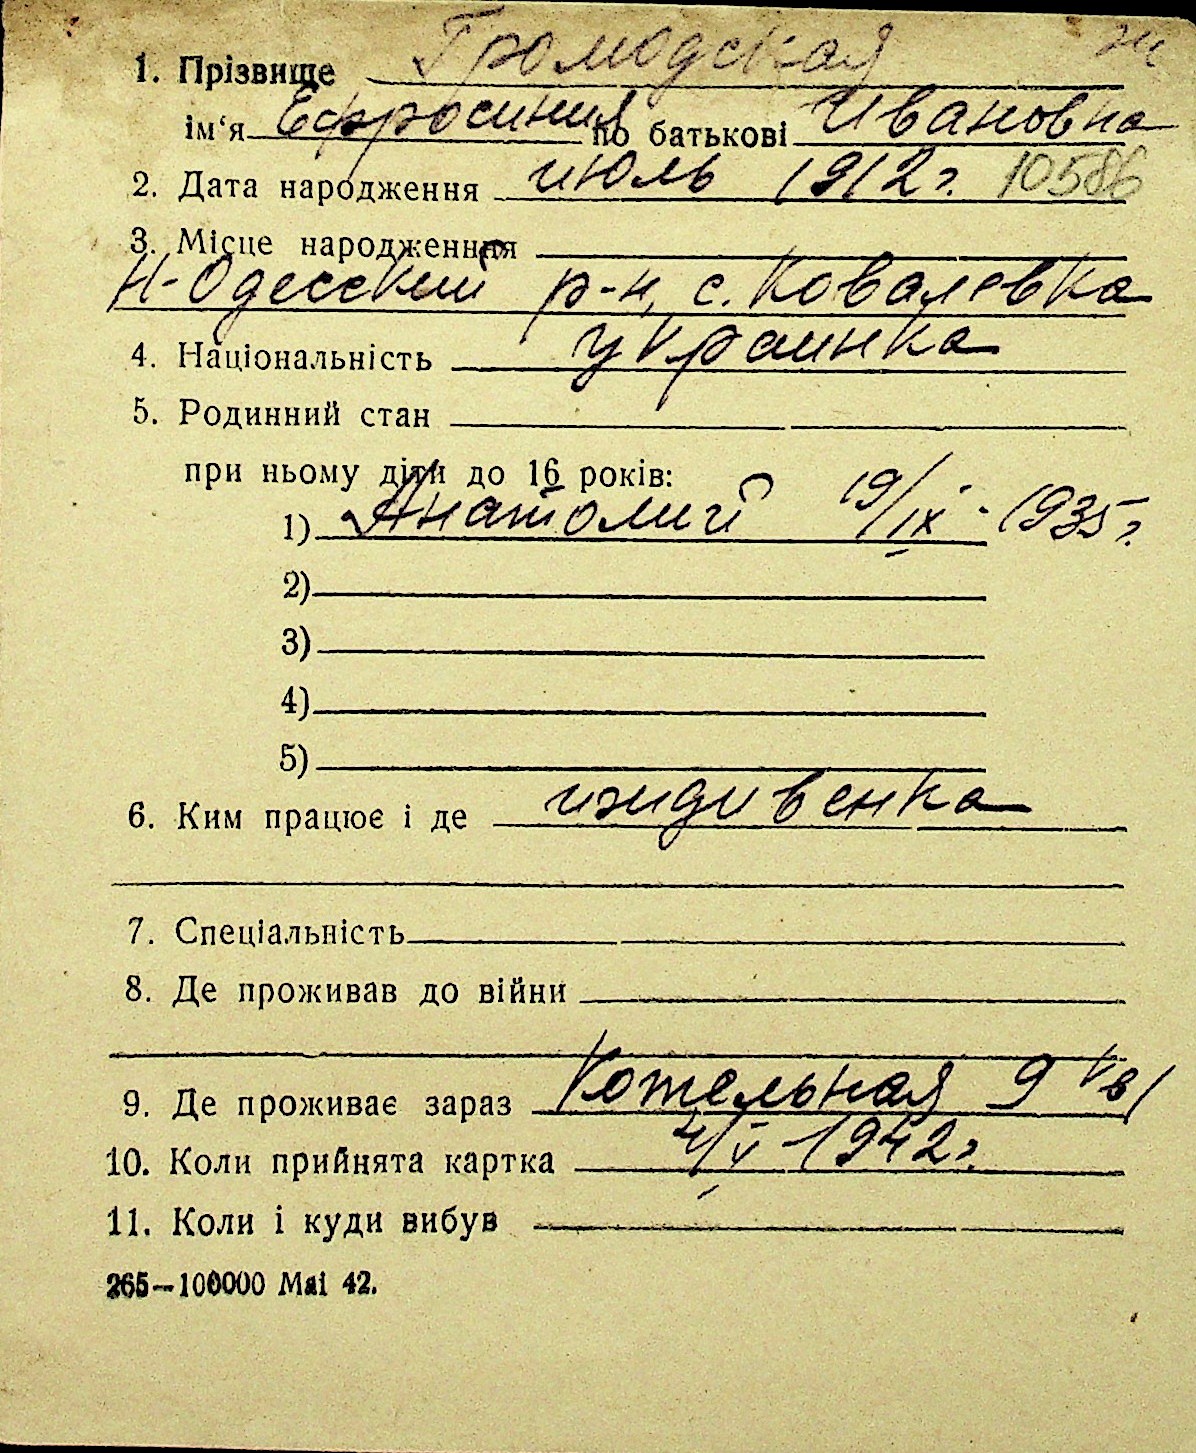 1. Прізвище Громодская ж
ім‘я Ефросиния по батькові Ивановна
2. Дата народження июль 1912 г. 10586
3. Місце народженння
Н-Одесский р-н, с. Ковалевка
4. Національність украинка
5. Родинний стан
при ньому діти до 16 років:
1) Анатолий 19/IX - 1935 г.
2)
3)
4)
5)
6. Ким працює і де иждивенка
7. Спеціальність
8. Де проживав до війни
9. Де проживає зараз Котельная 9 кв 1
10. Коли прийнята картка 4/V - 1942 г.
11. Коли і куди вибув
265—100000 Mai 42.